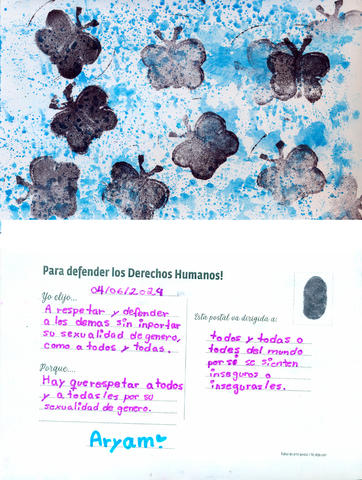 Para defender los Derechos Humanos!
04/06/2024
Yo elijo...
A respetar y defender
a los demas sin inportar
su sexualidad de genero,
como a todos y todas.
Porque....
Hay que respetar a todos
y a todas/les por su
sexualidad de genero.
Aryam
Esta postal va dirigida a:
todos y todas o
todes del mundo
por si se sienten
inseguros o
inseguras/les.